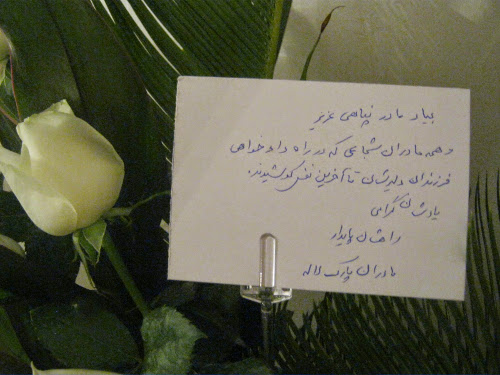 بیاد مادر پناهی عزیز
و همه مادران شجاعی که در راه دادخواهی
فرزندان دلیرشان تا آخرین نفس کوشیدند.
یادشان گرامی
راهشان پایدار
مادران پارک لاله